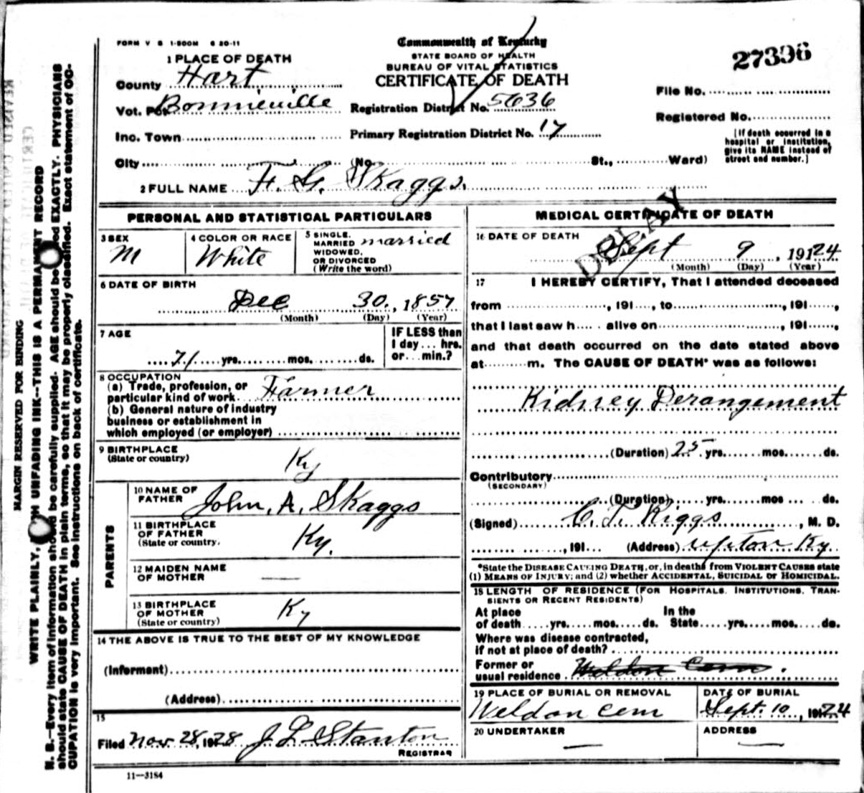 FORM V S 1-500M 6 20-11
Commonwealth of Kentucky
STATE BOARD OF HEALTH
BUREAU OF VITAL STATISTICS
CERTIFICATE OF DEATH
27396
1 PLACE OF DEATH
County Hart
Vot. Pct. Bonnieville Registration District No. 5636
Inc. Town Primary Registration District No. 17
City (No. St., Ward)
File No.
Registered No.
[If death occurred in a
hospital or institution,
give its NAME instead of
street and number.]
2 FULL NAME F. G. Skaggs.
PERSONAL AND STATISTICAL PARTICULARS
3 SEX
M
4 COLOR OR RACE
White
5 SINGLE,
MARRIED married
WIDOWED,
OR DIVORCED
(Write the word)
6 DATE OF BIRTH
Dec 30, 1857
(Month) (Day) (Year)
7 AGE
71 yrs. mos. ds.
IF LESS than
1 day... hrs.
or... min.?
8 OCCUPATION
(a) Trade, profession, or
particular kind of work Farmer
(b) General nature of industry
business or establishment in
which employed (or employer)
9 BIRTHPLACE
(State or country)
Ky
PARENTS
10 NAME OF
FATHER John, A. Skaggs
11 BIRTHPLACE
OF FATHER
(State or country.
Ky.
12 MAIDEN NAME
OF MOTHER —
13 BIRTHPLACE
OF MOTHER
(State or country)
Ky
14 THE ABOVE IS TRUE TO THE BEST OF MY KNOWLEDGE
(Informant)
(Address)
15
Filed Nov 28, 1928 J. L. Stanton
REGISTRAR
11—3184
MEDICAL CERTIFICATE OF DEATH
16 DATE OF DEATH
DELAY
Sept 9, 1924
(Month) (Day) (Year)
17 I HEREBY CERTIFY, That I attended deceased
from , 191 , to , 191 ,
that I last saw h alive on , 191 ,
and that death occurred on the date stated above
at m. The CAUSE OF DEATH* was as follows:
Kidney Derangement
(Duration) 25 yrs. mos. ds.
Contributory
(SECONDARY)
(Duration) yrs. mos. ds.
(Signed) C. T. Riggs, M. D.
, 191 (Address) Upton Ky
*State the DISEASE CAUSING DEATH, or, in deaths from VIOLENT CAUSES state
(1) MEANS OF INJURY; and (2) whether ACCIDENTAL, SUICIDAL OR HOMICIDAL.
18 LENGTH OF RESIDENCE (FOR HOSPITALS, INSTITUTIONS, TRAN-
SIENTS OR RECENT RESIDENTS)
At place In the
of death yrs. mos. ds. State yrs. mos. ds.
Where was disease contracted,
if not at place of death?
Former or
usual residence Weldon Cem.
19 PLACE OF BURIAL OR REMOVAL
Weldon cem
DATE OF BURIAL
Sept. 10, 1924
20 UNDERTAKER
—
ADDRESS
—
MARGIN RESERVED FOR BINDING
WRITE PLAINLY, WITH UNFADING INK--THIS IS A PERMANENT RECORD
N. B.—Every item of information should be carefully supplied. AGE should be stated EXACTLY. PHYSICIANS
should state CAUSE OF DEATH in plain terms, so that it may be properly classified. Exact statement of OC-
CUPATION is very important. See instructions on back of certificate.